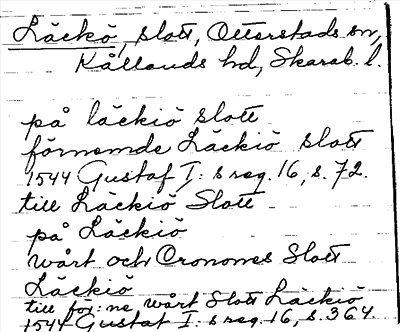 Läckö, slott, Otterstads sn,
Kållands hd, Skarab. l.
på läckiö slott
förnemde Läckiö slott
1544 Gustaf I: s reg. 16, s. 72.
till Läckiö Slott
på Läckiö
wårt och Cronones Slott
Läckiö
till för: ne wårt Slott Läckiö
1544 Gustaf I: s reg. 16, s. 364